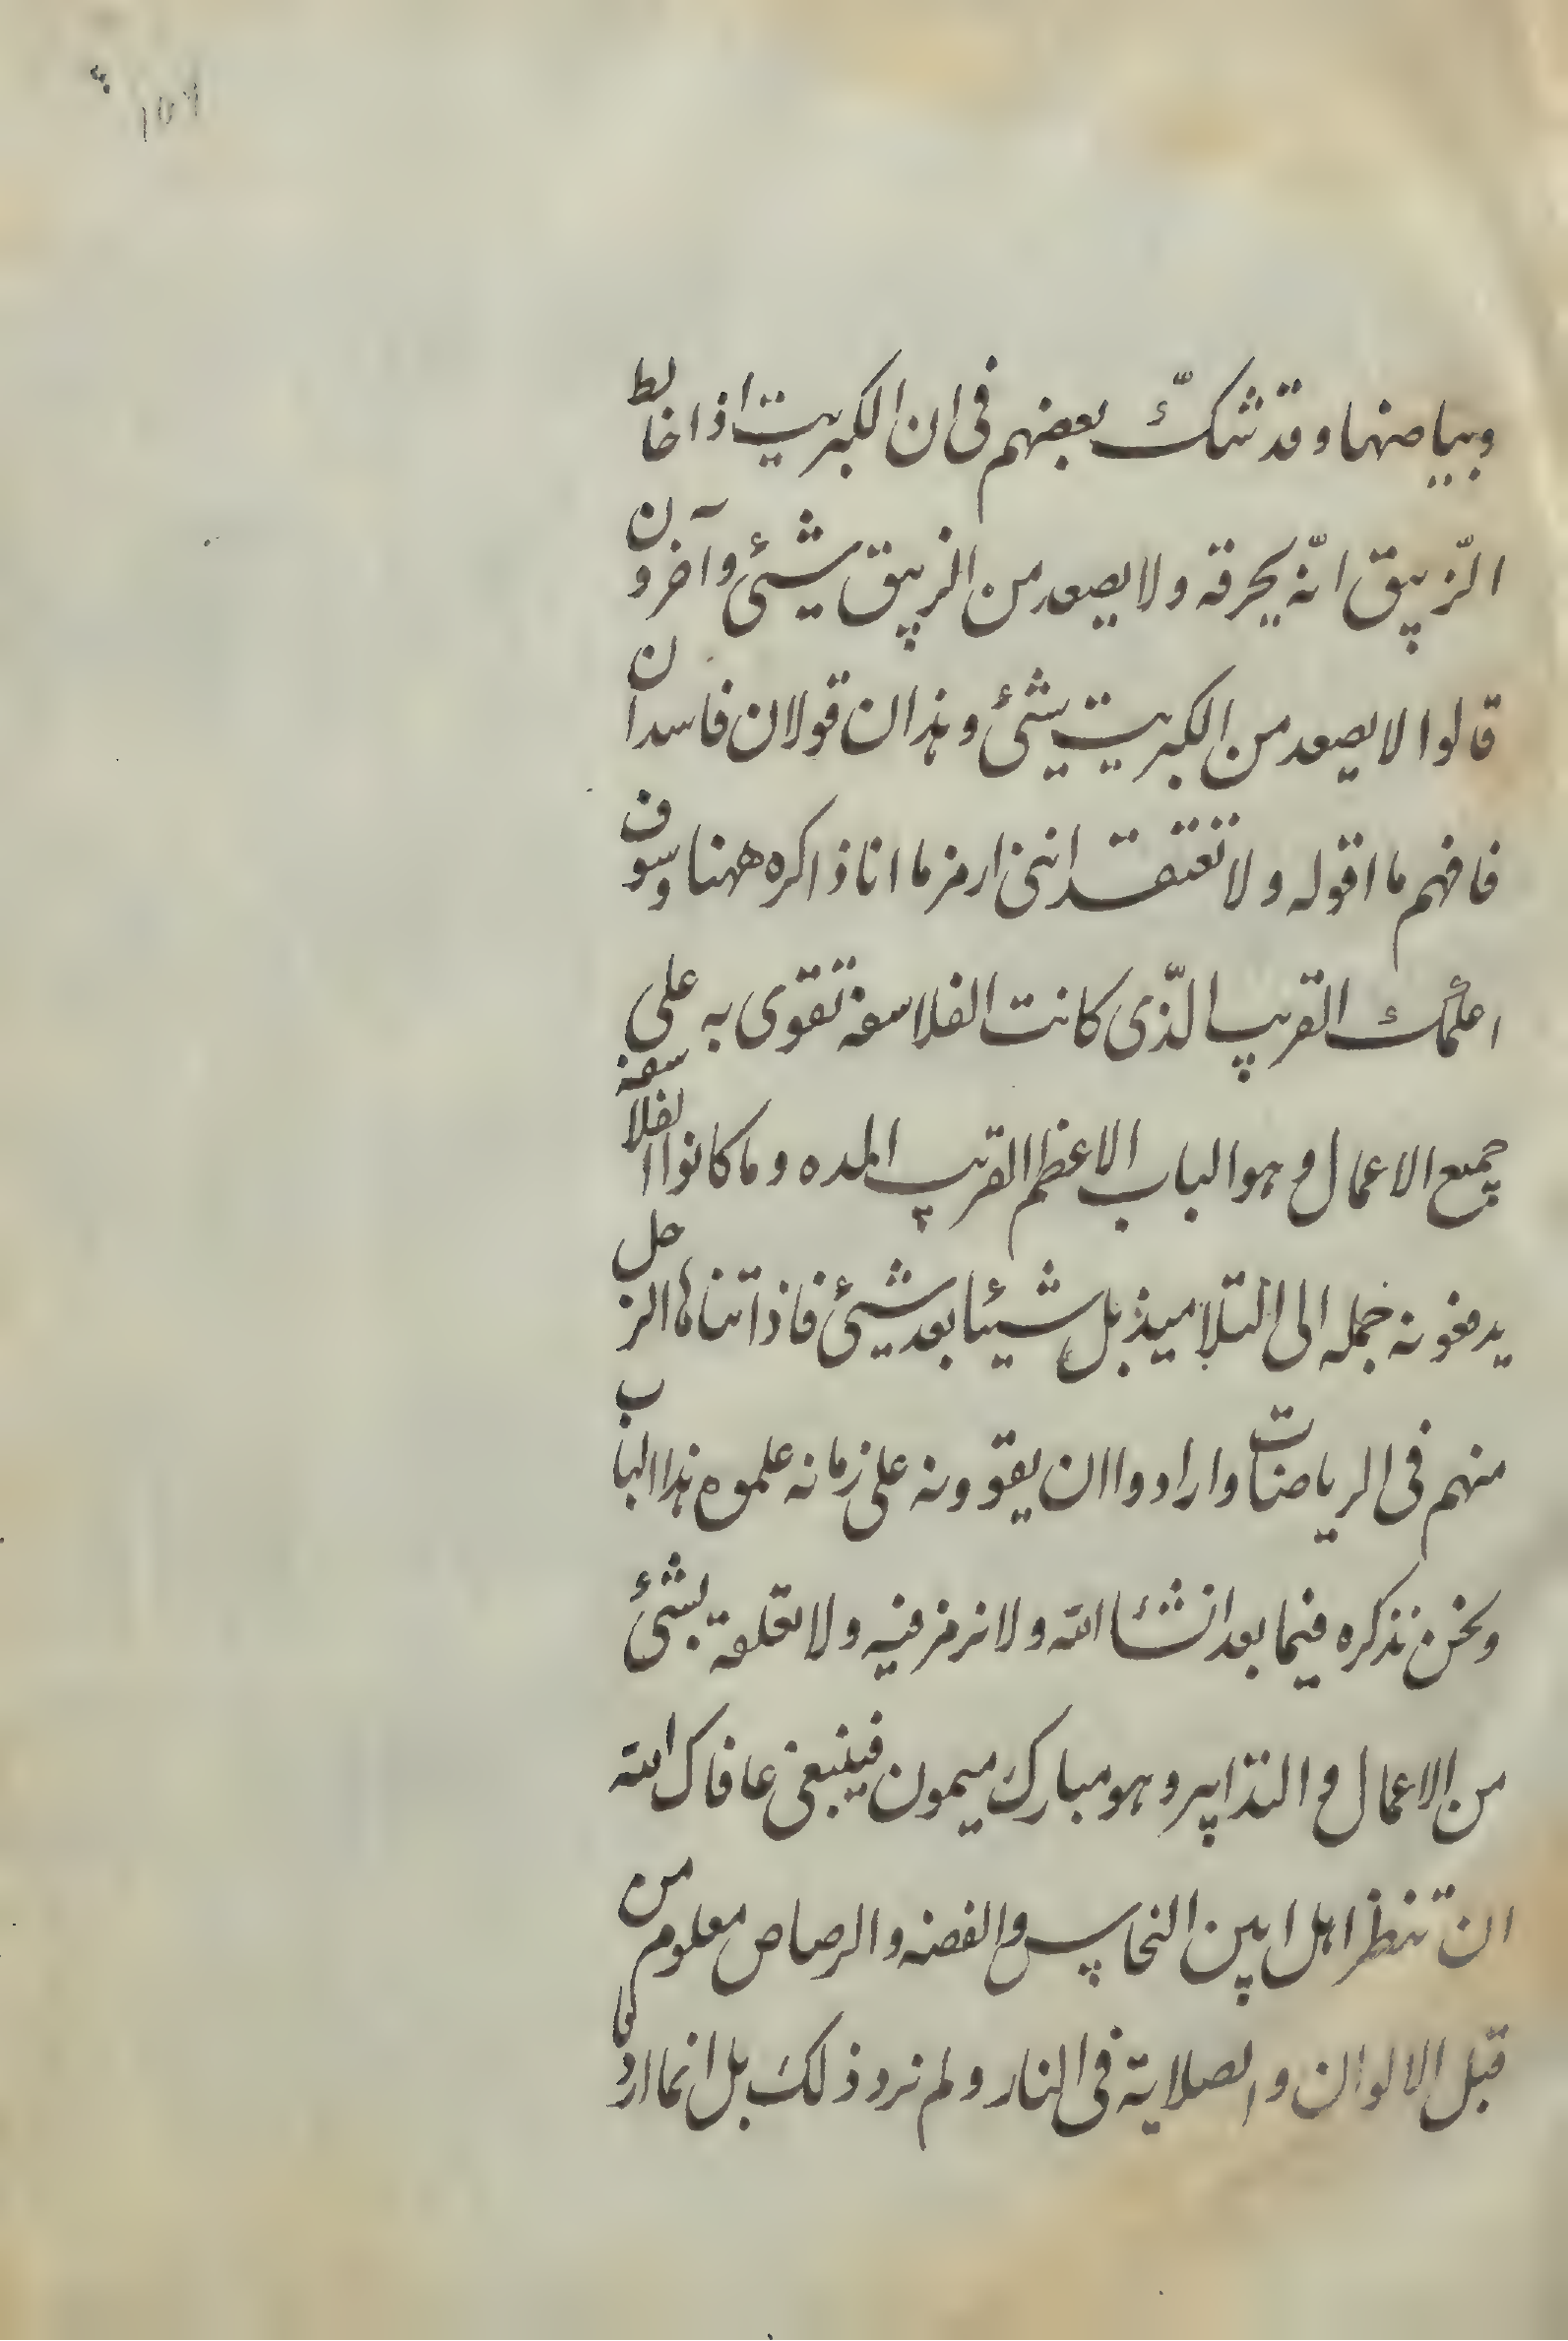 ١٥٦
وبياضها وقد شكّ بعضهم فى ان الكبريت اذا خالط
الزّيبق انّه يحرقه ولا يصعد من الزيبق شيئ وآخرون
قالوا لا يصعد من الكبريت شيئ وهذان قولان فاسدان
فافهم ما اقوله ولا تعتقد اننى ارمز ما انا ذاكره ههنا وسوف
اعلمك القريب الّذى كانت الفلاسفة تقوى به على
جميع الاعمال وهو الباب الاعظم القريب المده وما كانوا الفلاسفة
يدفعونه جمله الى التلاميذ بل شيئا بعد شيئ فاذا تناها الرجل
منهم فى الرياضات وارادوا ان يقوونه على زمانه علموه هذا الباب
ونحن نذكره فيما بعد انشئا الله ولا نرمز فيه ولا نعلقة بشئ
من الاعمال والتدابير وهو مبارك ميمون فينبغى عافاك الله
ان تنظر اهل ابين النحاس والفضه والرصاص معلوم من
قبل الالوان والصلاية فى النار ولم نرد ذلك بل انما اردنا